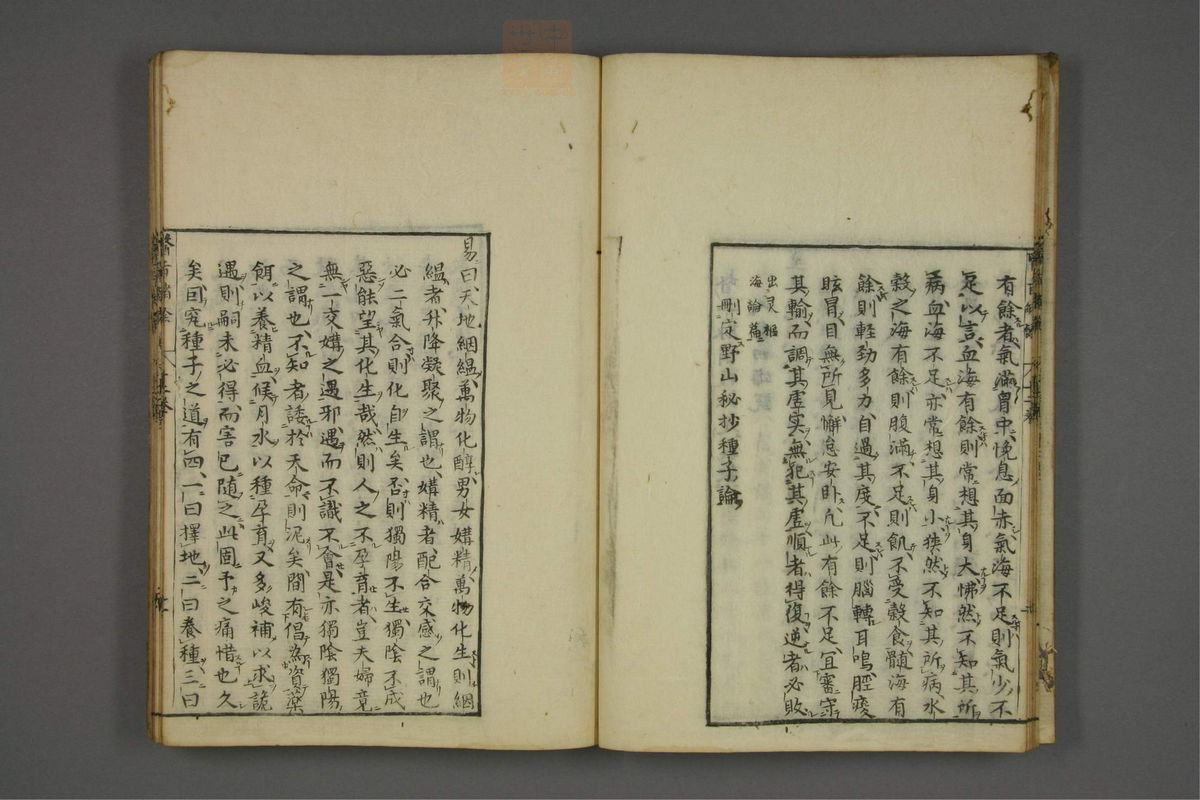 有餘者氣滿胷中悗息面赤氣海不足則氣少不
足以言血海有餘則常想其身大怫然不知其所
病血海不足亦常想其身小狹然不知其所病水
穀之海有餘則腹滿不足則飢不受穀食髄海有
餘則輕勁多力自過其度不足則腦轉耳鳴脛痠
眩冒目無所見懈怠安卧凡此有餘不足宜審守
其輸而調其虛実無犯其虛順者得復逆者必敗
出灵樞
海論篇
刪定野山秘抄種子論
易曰天地綱縕萬物化醇男女媾精萬物化生則綱
縕者升降凝聚之謂也媾精者配合交感之謂也
必二氣合則化自生矣否則獨陽不生獨陰不成
惡能望其化生哉然則人之不孕育者豈夫婦竟
無一交媾之遇邪遇而不識不會是亦獨陰獨陽
之謂也不知者諉於天命則泥矣間有倡為資藥
餌以養精血候月水以種孕育又多峻補以求詭
遇則嗣未必得而害已随之此固予之痛惜也久
矣囙究種子之道有四一曰擇地二曰養種三曰